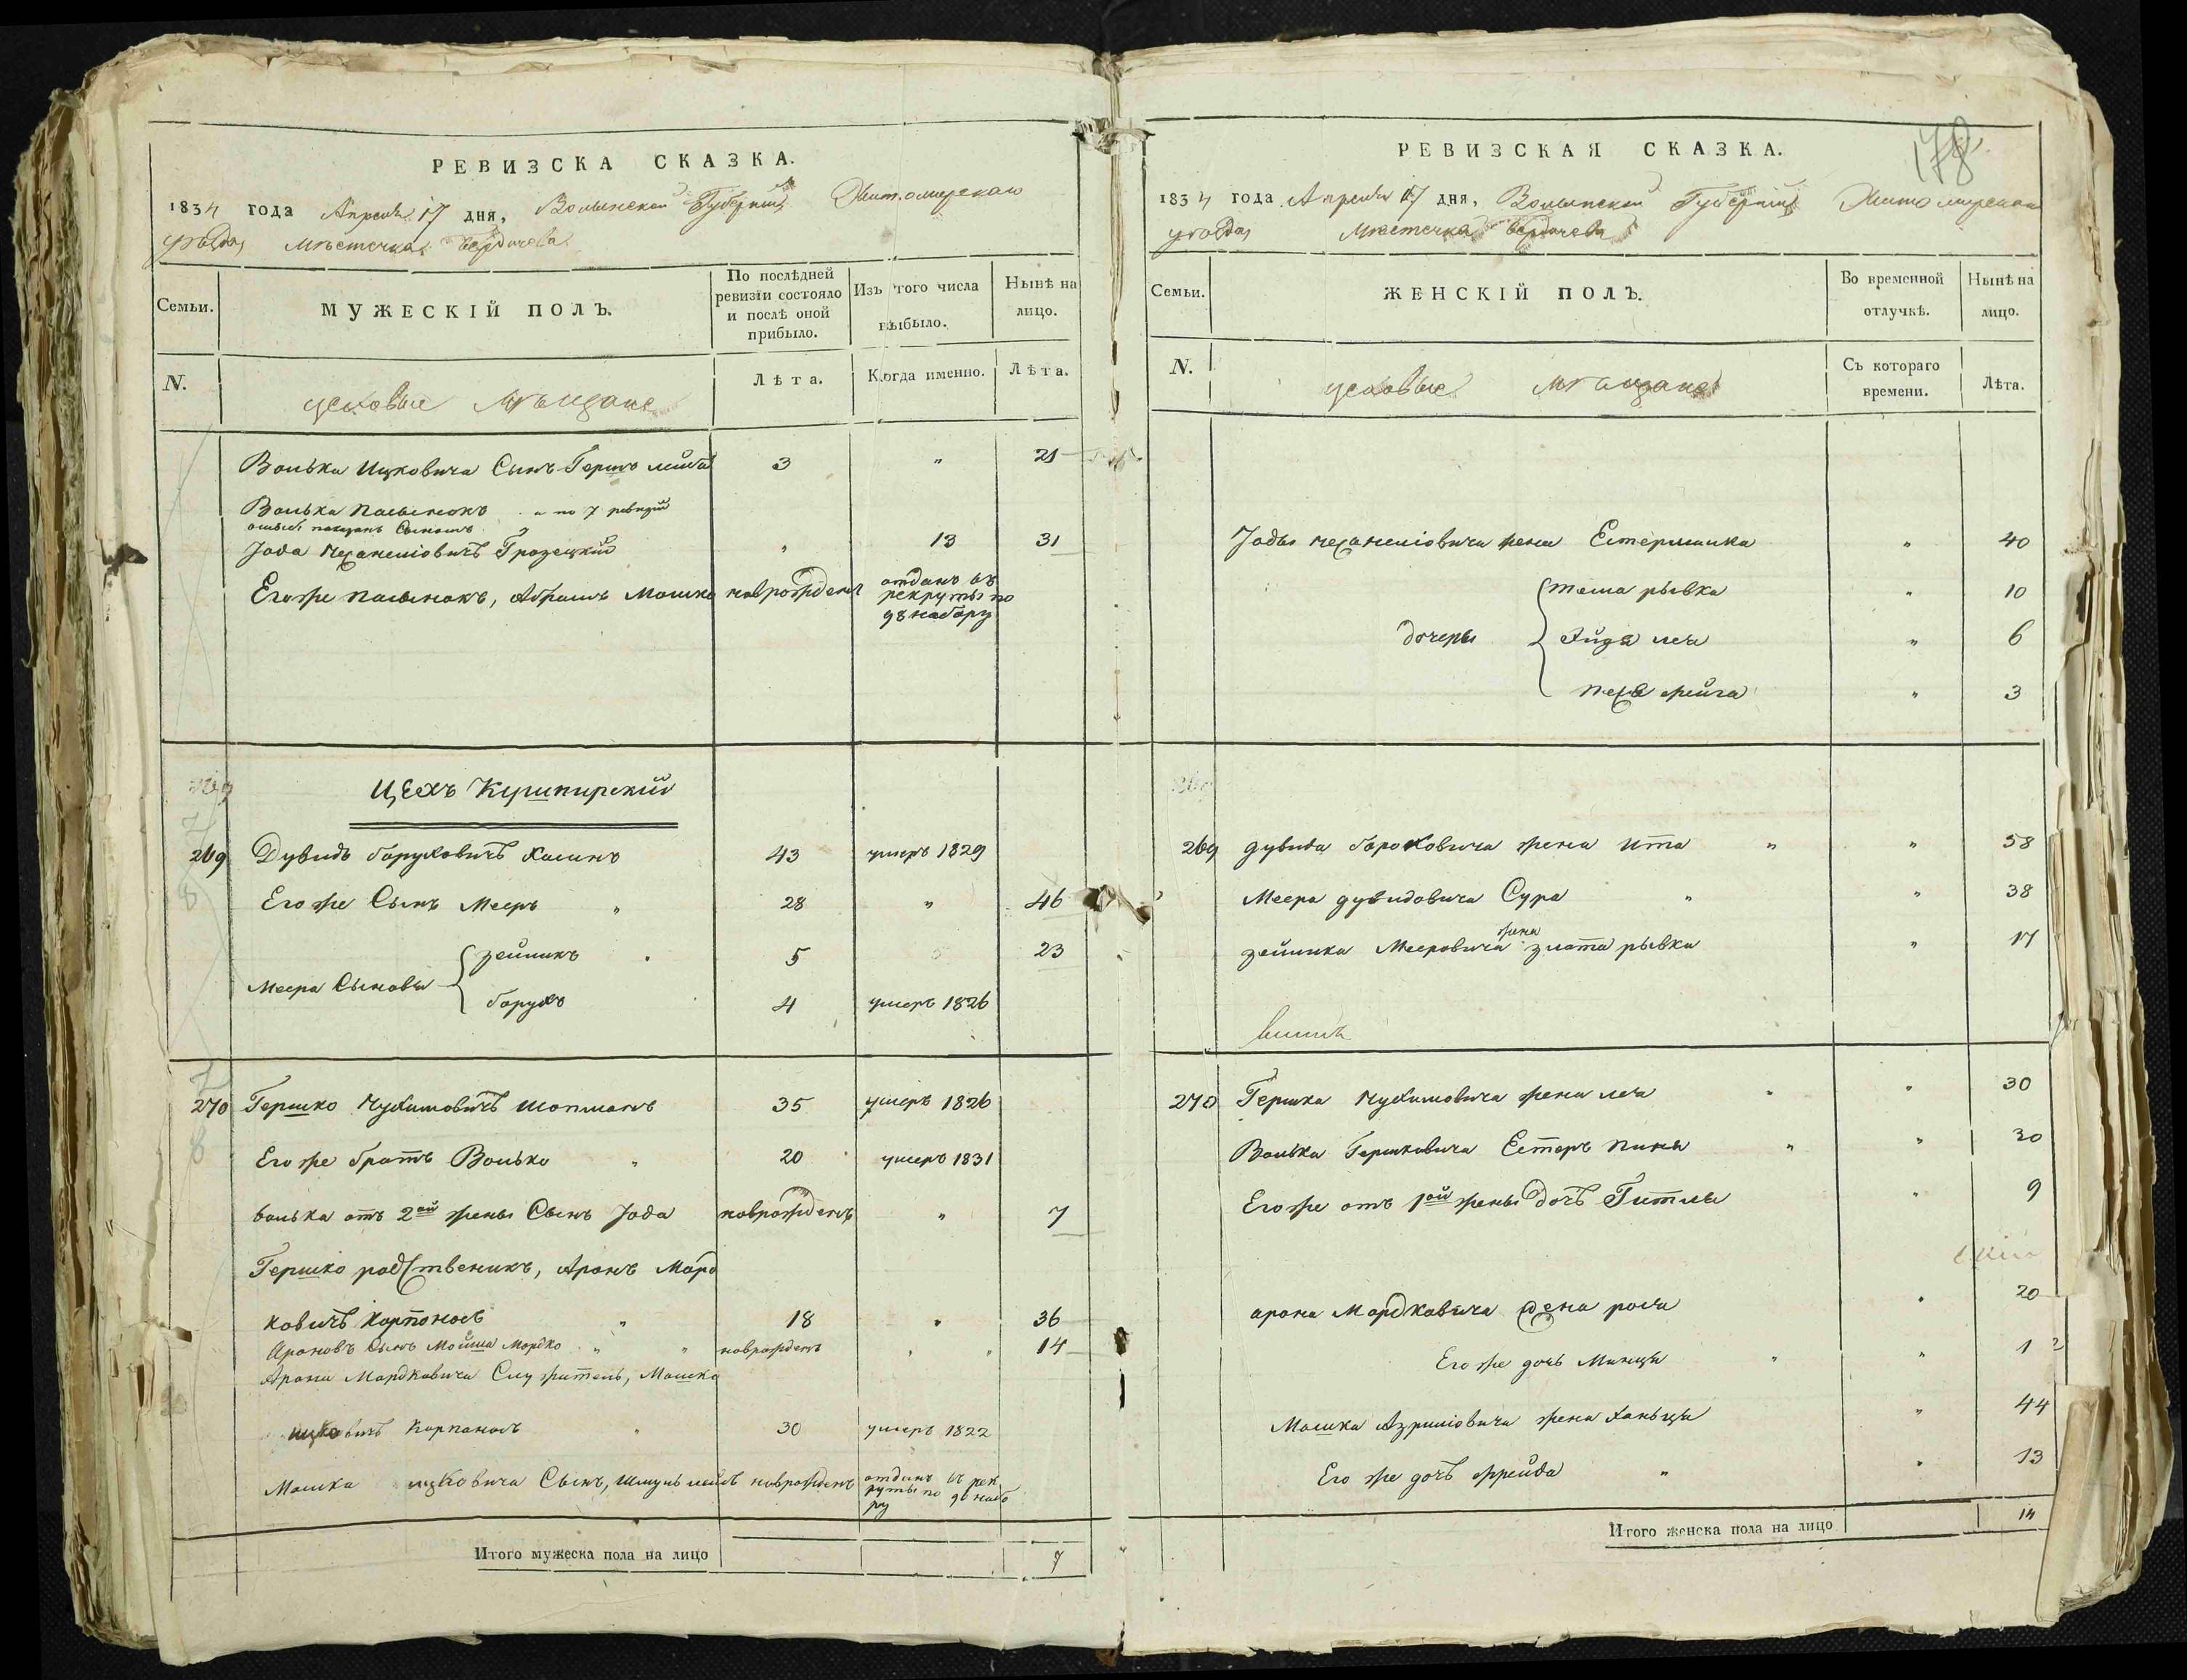 РЕВИЗСКА СКАЗКА.
1834 года Апреля 17 дня, Волынской Губернии Житомирского
уезда, Местечка Бердичева
Семьи.
МУЖЕСКІЙ ПОЛЪ.
По послѣдней ревизіи состояло и послѣ оной прибыло.
Изъ того числа выбыло.
Нынѣ на лицо.
N.
цеховые мѣщане
Лѣта.
Когда именно.
Лѣта.
Волька Ицковича Сынъ Гершъ лейба 3 " 21
Волька пасынокъ а по 7 ревизіи
показанъ Сыномъ
Іода Нехамeліовичъ Грозецкій " 13 31
Егоже пасынокъ, Абрамъ Мошко новрожденъ отданъ въ
рекруты по
98 набору
Цехъ Кушнирскій
269 Дувидъ боруховичъ Хасинъ 43 умеръ 1829
Егоже Сынъ Мееръ " 28 " 46
Меера Сыновья зейликъ 5 23
борухъ 4 умеръ 1826
270 Гершко Нухимовичъ Шопманъ 35 умеръ 1826
Егоже братъ Волько " 20 умеръ 1831
волька отъ 2ой жены Сынъ Іода новрожденъ " 7
Гершко родственикъ, Аронъ Мард
ковичъ Картоносъ " 18 " 36
Ароновъ Сынъ Мойша Мордко " " новрожденъ " " 14
Арона Мардковича Служитель, Мошко
ицковичъ Карпаносъ " 30 умеръ 1822
Мошка ицковича Сынъ, Шмуль лейбъ новрожденъ отданъ въ рек
руты по набо
ру
Итого мужеска пола на лицо 7
178
РЕВИЗСКАЯ СКАЗКА.
1834 года Апреля 17 дня, Волынской Губерніи Житомирского
уезда, Местечка Бердичева
Семьи.
ЖЕНСКІЙ ПОЛЪ.
Во временной отлучкѣ.
Нынѣ на лицо.
N.
цеховые мѣщане
Съ котораго времени.
Лѣта.
Іоды Нехамеліовича жена Естерминка " 40
дочеры тема рывка " 10
Эйдя лея " 6
песя фейга " 3
269 дувида бороховича жена ита " " 58
Меера дувидовича Сура " " 38
зейлика Мееровича жена злота рывка " 17
270 Гершка Нухимовича жена лея " " 30
Волька Гершковича Естеръ пиня " " 30
Егоже отъ 1ой жены дочъ Гитля " 9
арона Мордковича жена рося " 20
Егоже дочь Минця " " 1
Мошка Азриліовича жена ханьця " 44
Его же дочъ фрейда " " 13
Итого женска пола на лицо 14